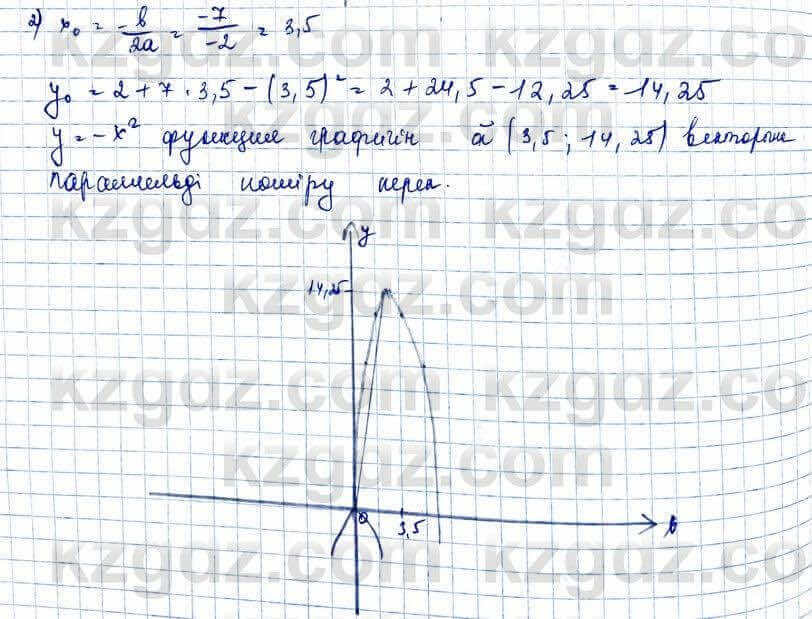 2) x₀ = -b/2a = -7/-2 = 3,5
y₀ = 2 + 7 · 3,5 - (3,5)² = 2 + 24,5 - 12,25 = 14,25
y = -x² функция графигін a⃗ (3,5; 14,25) векторына
параллельді көшіру керек.
y
14,25
0
3,5
kzgdz.com
kzgdz.com
kzgdz.com
kzgdz.com
kzgdz.com
kzgdz.com
kzgdz.com
kzgdz.com
kzgdz.com
kzgdz.com
kzgdz.com